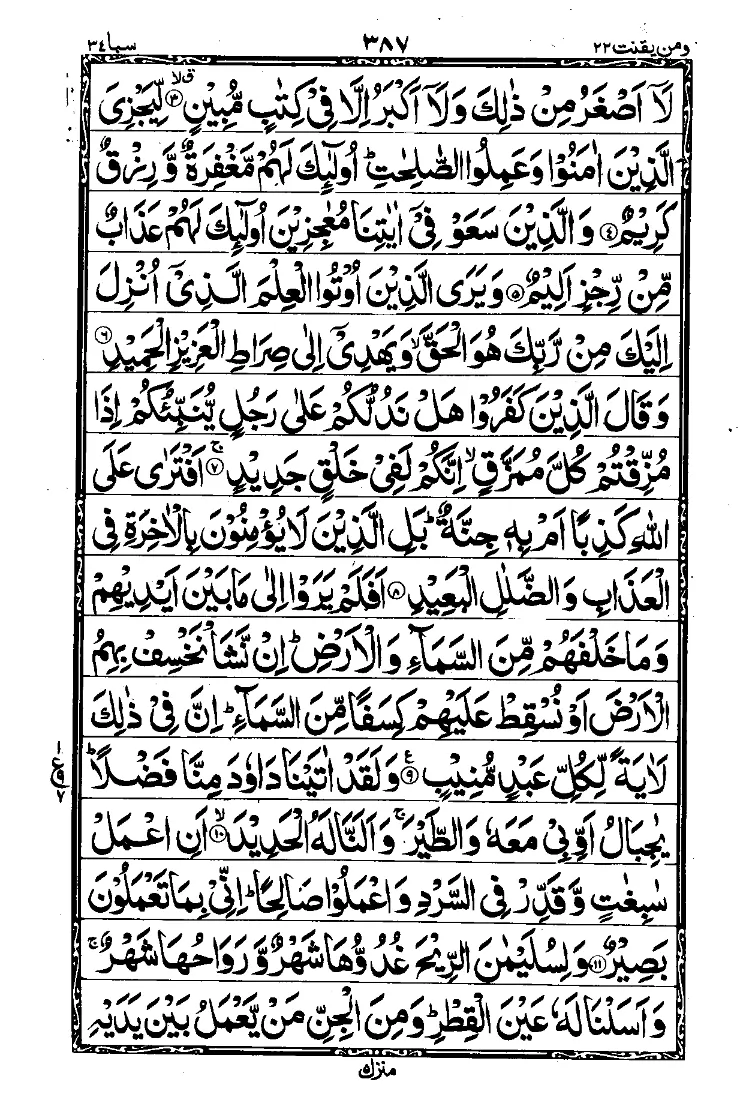 ومن يقنت ٢٢ ٣٨٧ سبا ٣٤
لَاۤ اَصْغَرُ مِنْ ذٰلِكَ وَلَاۤ اَكْبَرُ اِلَّا فِیْ كِتٰبٍ مُّبِیْنٍ ۙق ﴿۳﴾ لِّیَجْزِیَ
الَّذِیْنَ اٰمَنُوْا وَعَمِلُوا الصّٰلِحٰتِ ؕ اُولٰٓئِكَ لَهُمْ مَّغْفِرَةٌ وَّ رِزْقٌ
كَرِیْمٌ ﴿۴﴾ وَ الَّذِیْنَ سَعَوْ فِیْۤ اٰیٰتِنَا مُعٰجِزِیْنَ اُولٰٓئِكَ لَهُمْ عَذَابٌ
مِّنْ رِّجْزٍ اَلِیْمٌ ﴿۵﴾ وَ یَرَی الَّذِیْنَ اُوْتُوا الْعِلْمَ الَّذِیْۤ اُنْزِلَ
اِلَیْكَ مِنْ رَّبِّكَ هُوَ الْحَقَّ ۙ وَ یَهْدِیْۤ اِلٰی صِرَاطِ الْعَزِیْزِ الْحَمِیْدِ ﴿۶﴾
وَ قَالَ الَّذِیْنَ كَفَرُوْا هَلْ نَدُلُّكُمْ عَلٰی رَجُلٍ یُّنَبِّئُكُمْ اِذَا
مُزِّقْتُمْ كُلَّ مُمَزَّقٍ ۙ اِنَّكُمْ لَفِیْ خَلْقٍ جَدِیْدٍ ۚ ﴿۷﴾ اَفْتَرٰی عَلَی
اللهِ كَذِبًا اَمْ بِهٖ جِنَّةٌ ؕ بَلِ الَّذِیْنَ لَا یُؤْمِنُوْنَ بِالْاٰخِرَةِ فِی
الْعَذَابِ وَ الضَّلٰلِ الْبَعِیْدِ ﴿۸﴾ اَفَلَمْ یَرَوْا اِلٰی مَا بَیْنَ اَیْدِیْهِمْ
وَ مَا خَلْفَهُمْ مِّنَ السَّمَآءِ وَ الْاَرْضِ ؕ اِنْ نَّشَاْ نَخْسِفْ بِهِمُ
الْاَرْضَ اَوْ نُسْقِطْ عَلَیْهِمْ كِسَفًا مِّنَ السَّمَآءِ ؕ اِنَّ فِیْ ذٰلِكَ
لَاٰیَةً لِّكُلِّ عَبْدٍ مُّنِیْبٍ ﴿۹﴾ ع وَ لَقَدْ اٰتَیْنَا دَاوٗدَ مِنَّا فَضْلًا ؕ
یٰجِبَالُ اَوِّبِیْ مَعَهٗ وَ الطَّیْرَ ۚ وَ اَلَنَّا لَهُ الْحَدِیْدَ ۙ ﴿۱۰﴾ اَنِ اعْمَلْ
سٰبِغٰتٍ وَّ قَدِّرْ فِی السَّرْدِ وَ اعْمَلُوْا صَالِحًا ؕ اِنِّیْ بِمَا تَعْمَلُوْنَ
بَصِیْرٌ ﴿۱۱﴾ وَ لِسُلَیْمٰنَ الرِّیْحَ غُدُوُّهَا شَهْرٌ وَّ رَوَاحُهَا شَهْرٌ ۚ
وَ اَسَلْنَا لَهٗ عَیْنَ الْقِطْرِ ؕ وَ مِنَ الْجِنِّ مَنْ یَّعْمَلُ بَیْنَ یَدَیْهِ
منزل ٥